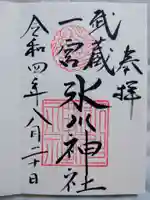 奉拝
武蔵
一宮
氷川神社
令和四年八月二十日